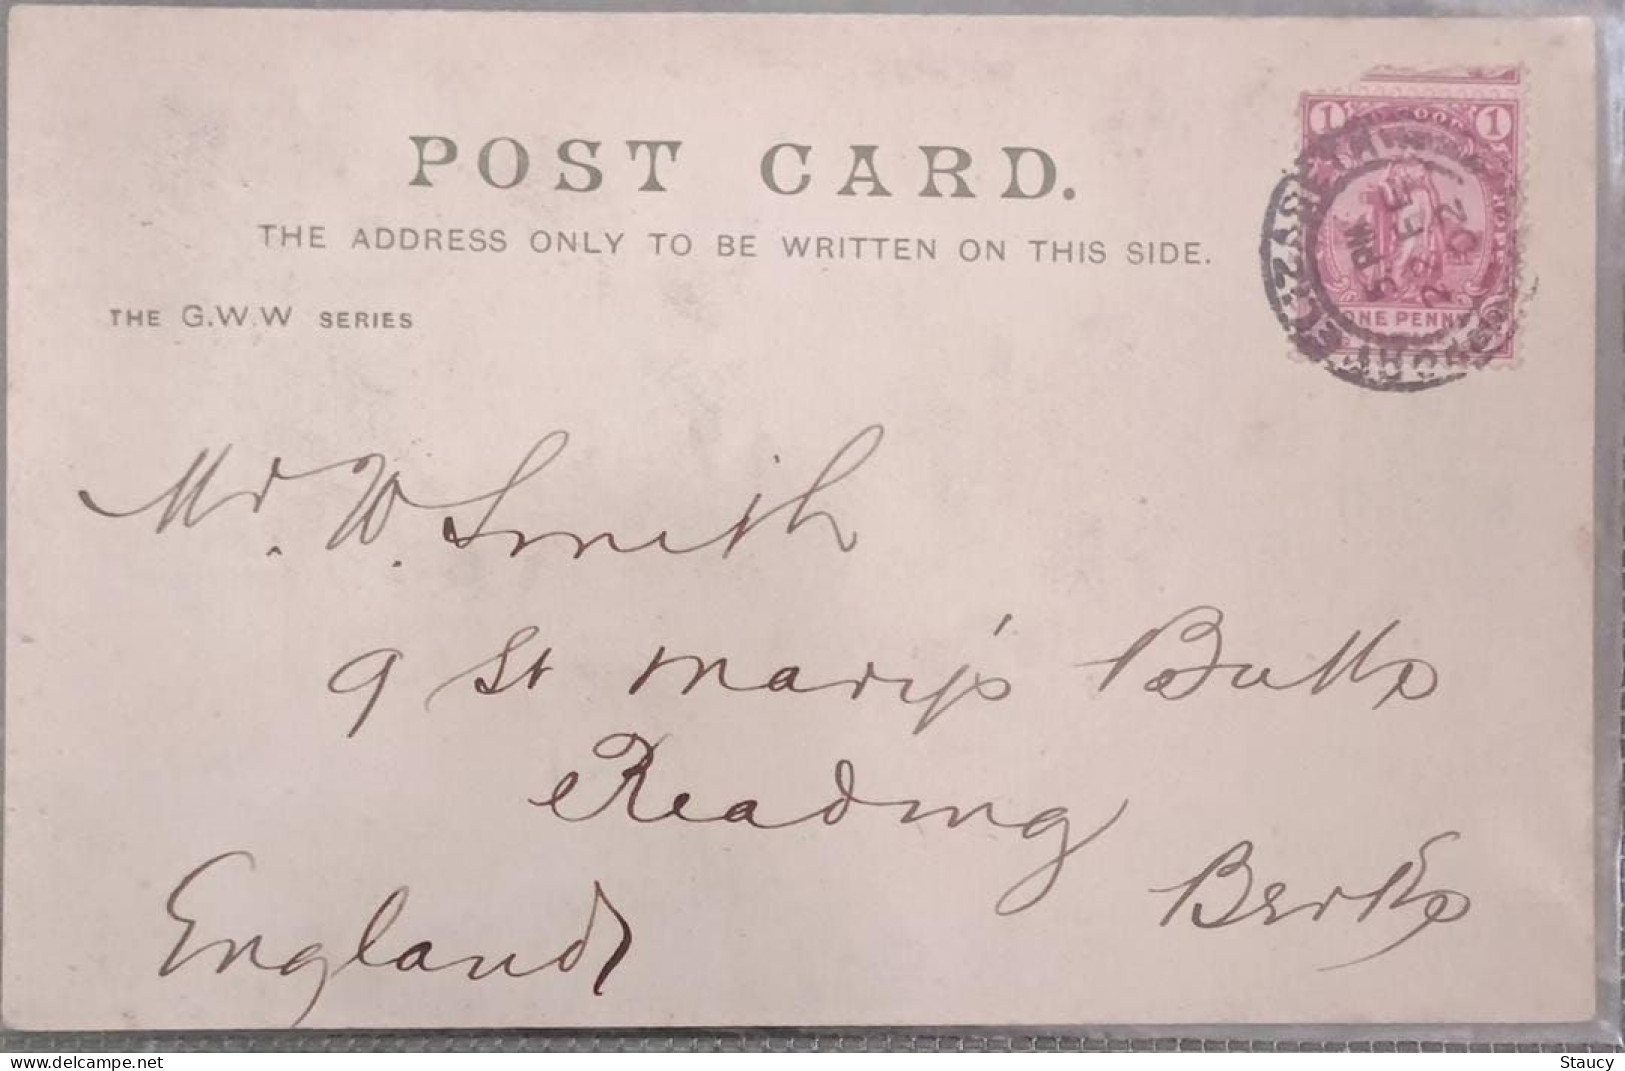 POST CARD.
THE ADDRESS ONLY TO BE WRITTEN ON THIS SIDE.
THE G.W.W SERIES
1 1
ONE PENNY
ELIZABETH
5 PM
22 FE
02
Mr. W. Smith
9 St Mary's Butts
Reading
Berks
England
Staucy